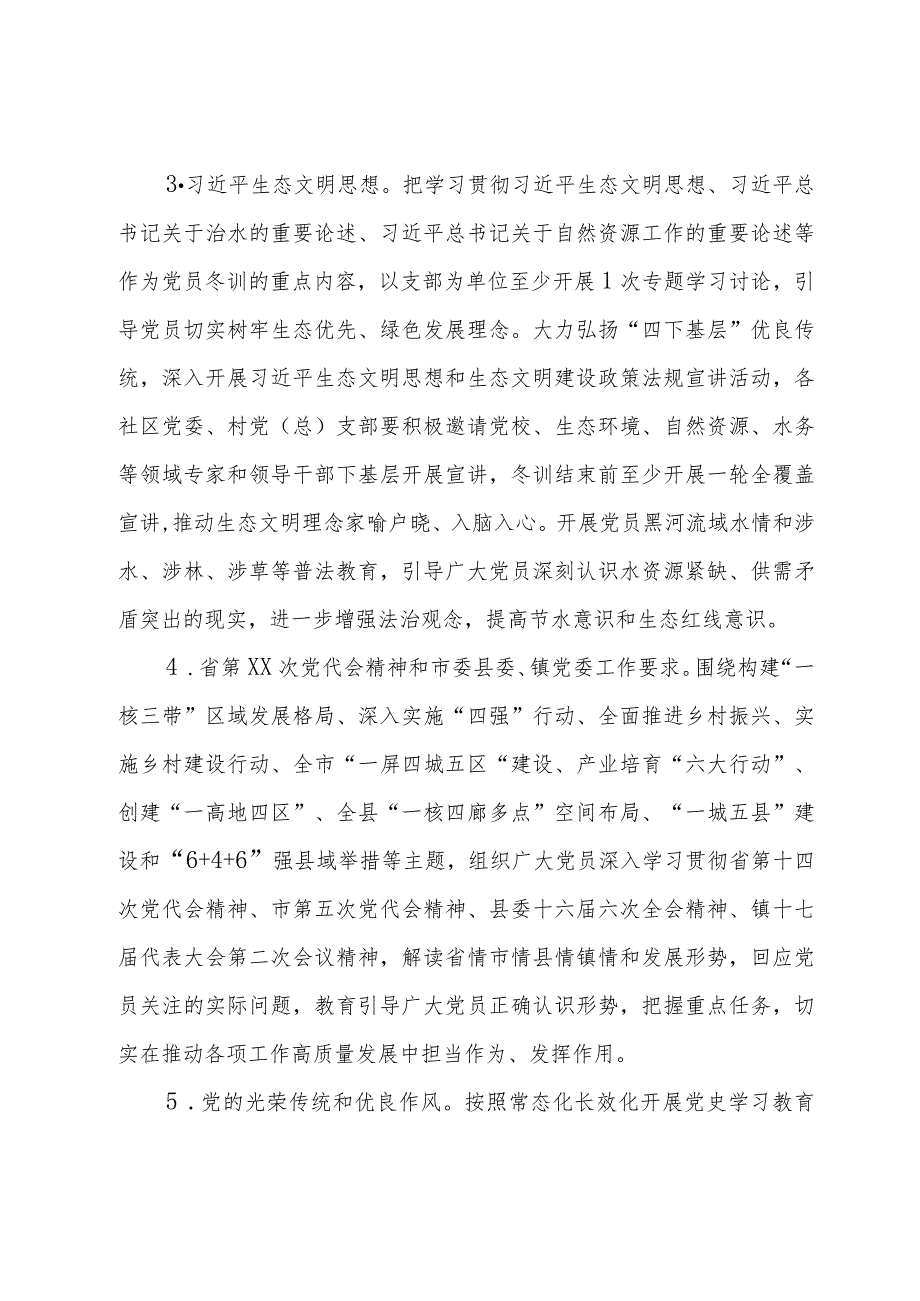 3•习近平生态文明思想。把学习贯彻习近平生态文明思想、习近平总
书记关于治水的重要论述、习近平总书记关于自然资源工作的重要论述等
作为党员冬训的重点内容，以支部为单位至少开展1次专题学习讨论，引
导党员切实树牢生态优先、绿色发展理念。大力弘扬“四下基层”优良传
统，深入开展习近平生态文明思想和生态文明建设政策法规宣讲活动，各
社区党委、村党（总）支部要积极邀请党校、生态环境、自然资源、水务
等领域专家和领导干部下基层开展宣讲，冬训结束前至少开展一轮全覆盖
宣讲,推动生态文明理念家喻户晓、入脑入心。开展党员黑河流域水情和涉
水、涉林、涉草等普法教育，引导广大党员深刻认识水资源紧缺、供需矛
盾突出的现实，进一步增强法治观念，提高节水意识和生态红线意识。
4.省第XX次党代会精神和市委县委、镇党委工作要求。围绕构建“一
核三带”区域发展格局、深入实施“四强”行动、全面推进乡村振兴、实
施乡村建设行动、全市“一屏四城五区“建设、产业培育“六大行动”、
创建“一高地四区”、全县“一核四廊多点”空间布局、“一城五县”建
设和“6+4+6”强县域举措等主题，组织广大党员深入学习贯彻省第十四
次党代会精神、市第五次党代会精神、县委十六届六次全会精神、镇十七
届代表大会第二次会议精神，解读省情市情县情镇情和发展形势，回应党
员关注的实际问题，教育引导广大党员正确认识形势，把握重点任务，切
实在推动各项工作高质量发展中担当作为、发挥作用。
5.党的光荣传统和优良作风。按照常态化长效化开展党史学习教育